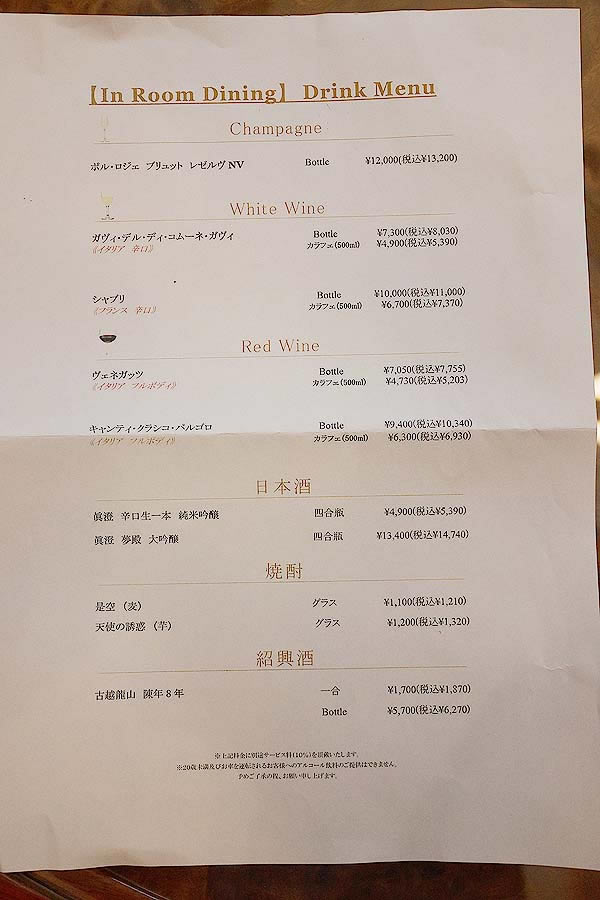 【In Room Dining】 Drink Menu
Champagne
ポル・ロジェ ブリュット レゼルヴ NV Bottle ¥12,000(税込¥13,200)
White Wine
ガヴィ・デル・ディ・コムーネ・ガヴィ Bottle ¥7,300(税込¥8,030)
《イタリア 辛口》 カラフェ(500ml) ¥4,900(税込¥5,390)
シャブリ Bottle ¥10,000(税込¥11,000)
《フランス 辛口》 カラフェ(500ml) ¥6,700(税込¥7,370)
Red Wine
ヴェネガッツ Bottle ¥7,050(税込¥7,755)
《イタリア フルボディ》 カラフェ(500ml) ¥4,730(税込¥5,203)
キャンティ・クラシコ・パルゴロ Bottle ¥9,400(税込¥10,340)
《イタリア フルボディ》 カラフェ(500ml) ¥6,300(税込¥6,930)
日本酒
眞澄 辛口生一本 純米吟醸 四合瓶 ¥4,900(税込¥5,390)
眞澄 夢殿 大吟醸 四合瓶 ¥13,400(税込¥14,740)
焼酎
是空 (麦) グラス ¥1,100(税込¥1,210)
天使の誘惑 (芋) グラス ¥1,200(税込¥1,320)
紹興酒
古越龍山 陳年8年 一合 ¥1,700(税込¥1,870)
Bottle ¥5,700(税込¥6,270)
※上記料金に別途サービス料(10%)を頂戴いたします。
※20歳未満及びお車を運転されるお客様へのアルコール飲料のご提供はできません。
予めご了承の程、お願い申し上げます。